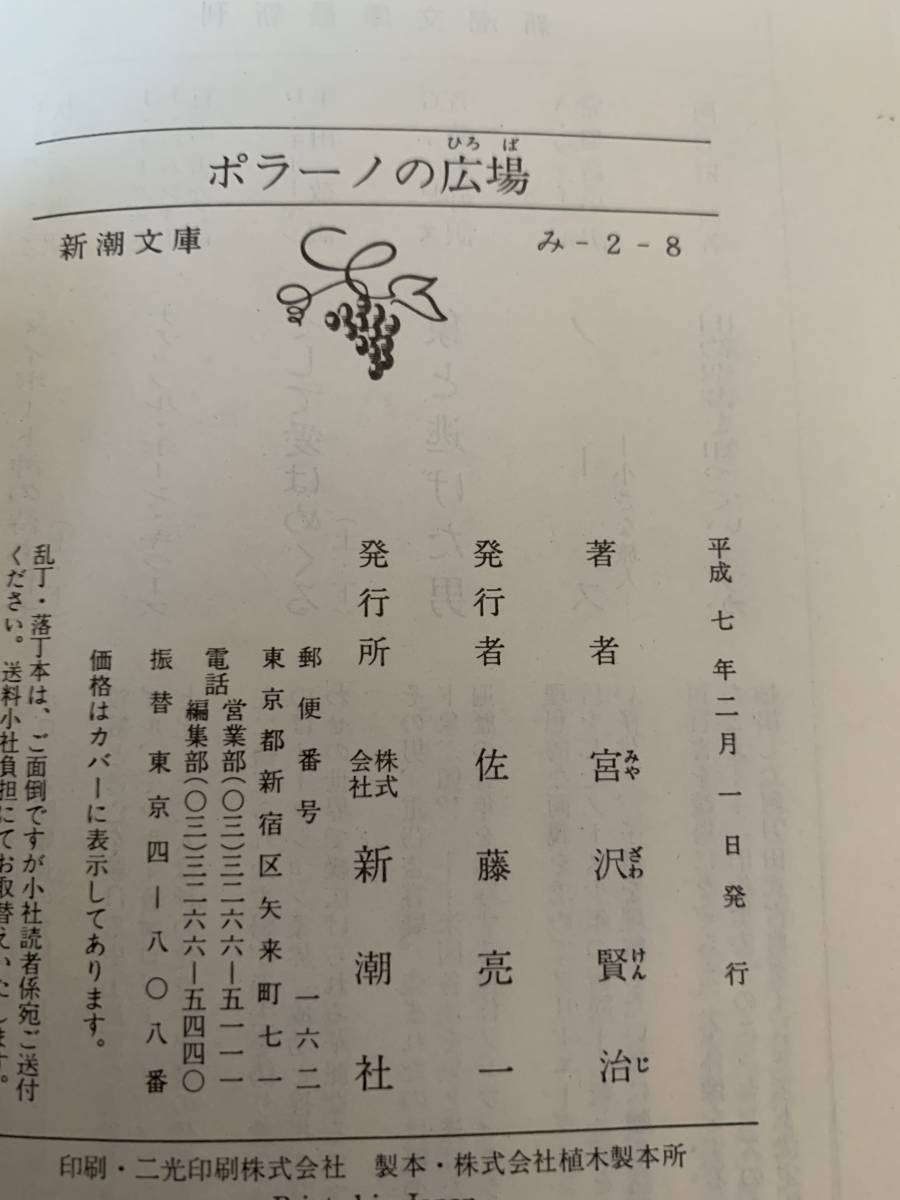 ポラーノの広場
ひろば
新潮文庫
み-2-8
平成七年二月一日発行
著者 宮沢賢治
みやざわけんじ
発行者 佐藤亮一
発行所 株式会社 新潮社
郵便番号 一六二
東京都新宿区矢来町七一
電話 営業部(〇三)三二六六―五一一一
編集部(〇三)三二六六―五四四〇
振替 東京四―八〇八番
価格はカバーに表示してあります。
乱丁・落丁本は、ご面倒ですが小社読者係宛ご送付
ください。送料小社負担にてお取替えいたします。
印刷・二光印刷株式会社 製本・株式会社植木製本所
Printed in Japan